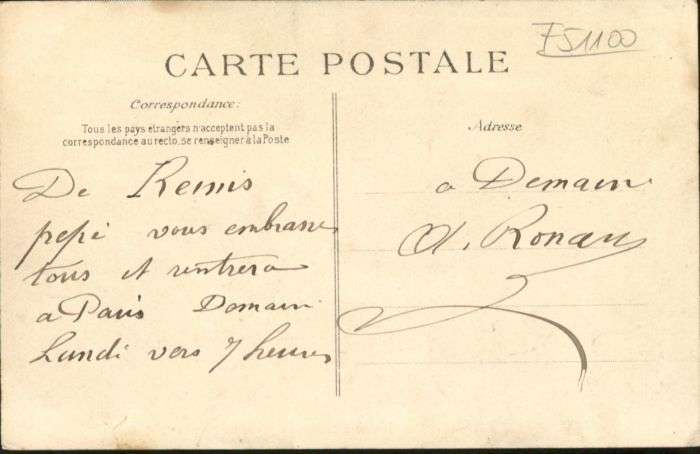 751100
CARTE POSTALE
Correspondance:
Tous les pays étrangers n'acceptent pas la
correspondance au recto, se renseigner à la Poste
De Reims
pepé vous embrasse
tous et rentrera
a Paris Demain
Lundi vers 7 heures
Adresse
a Demain
A. Ronan